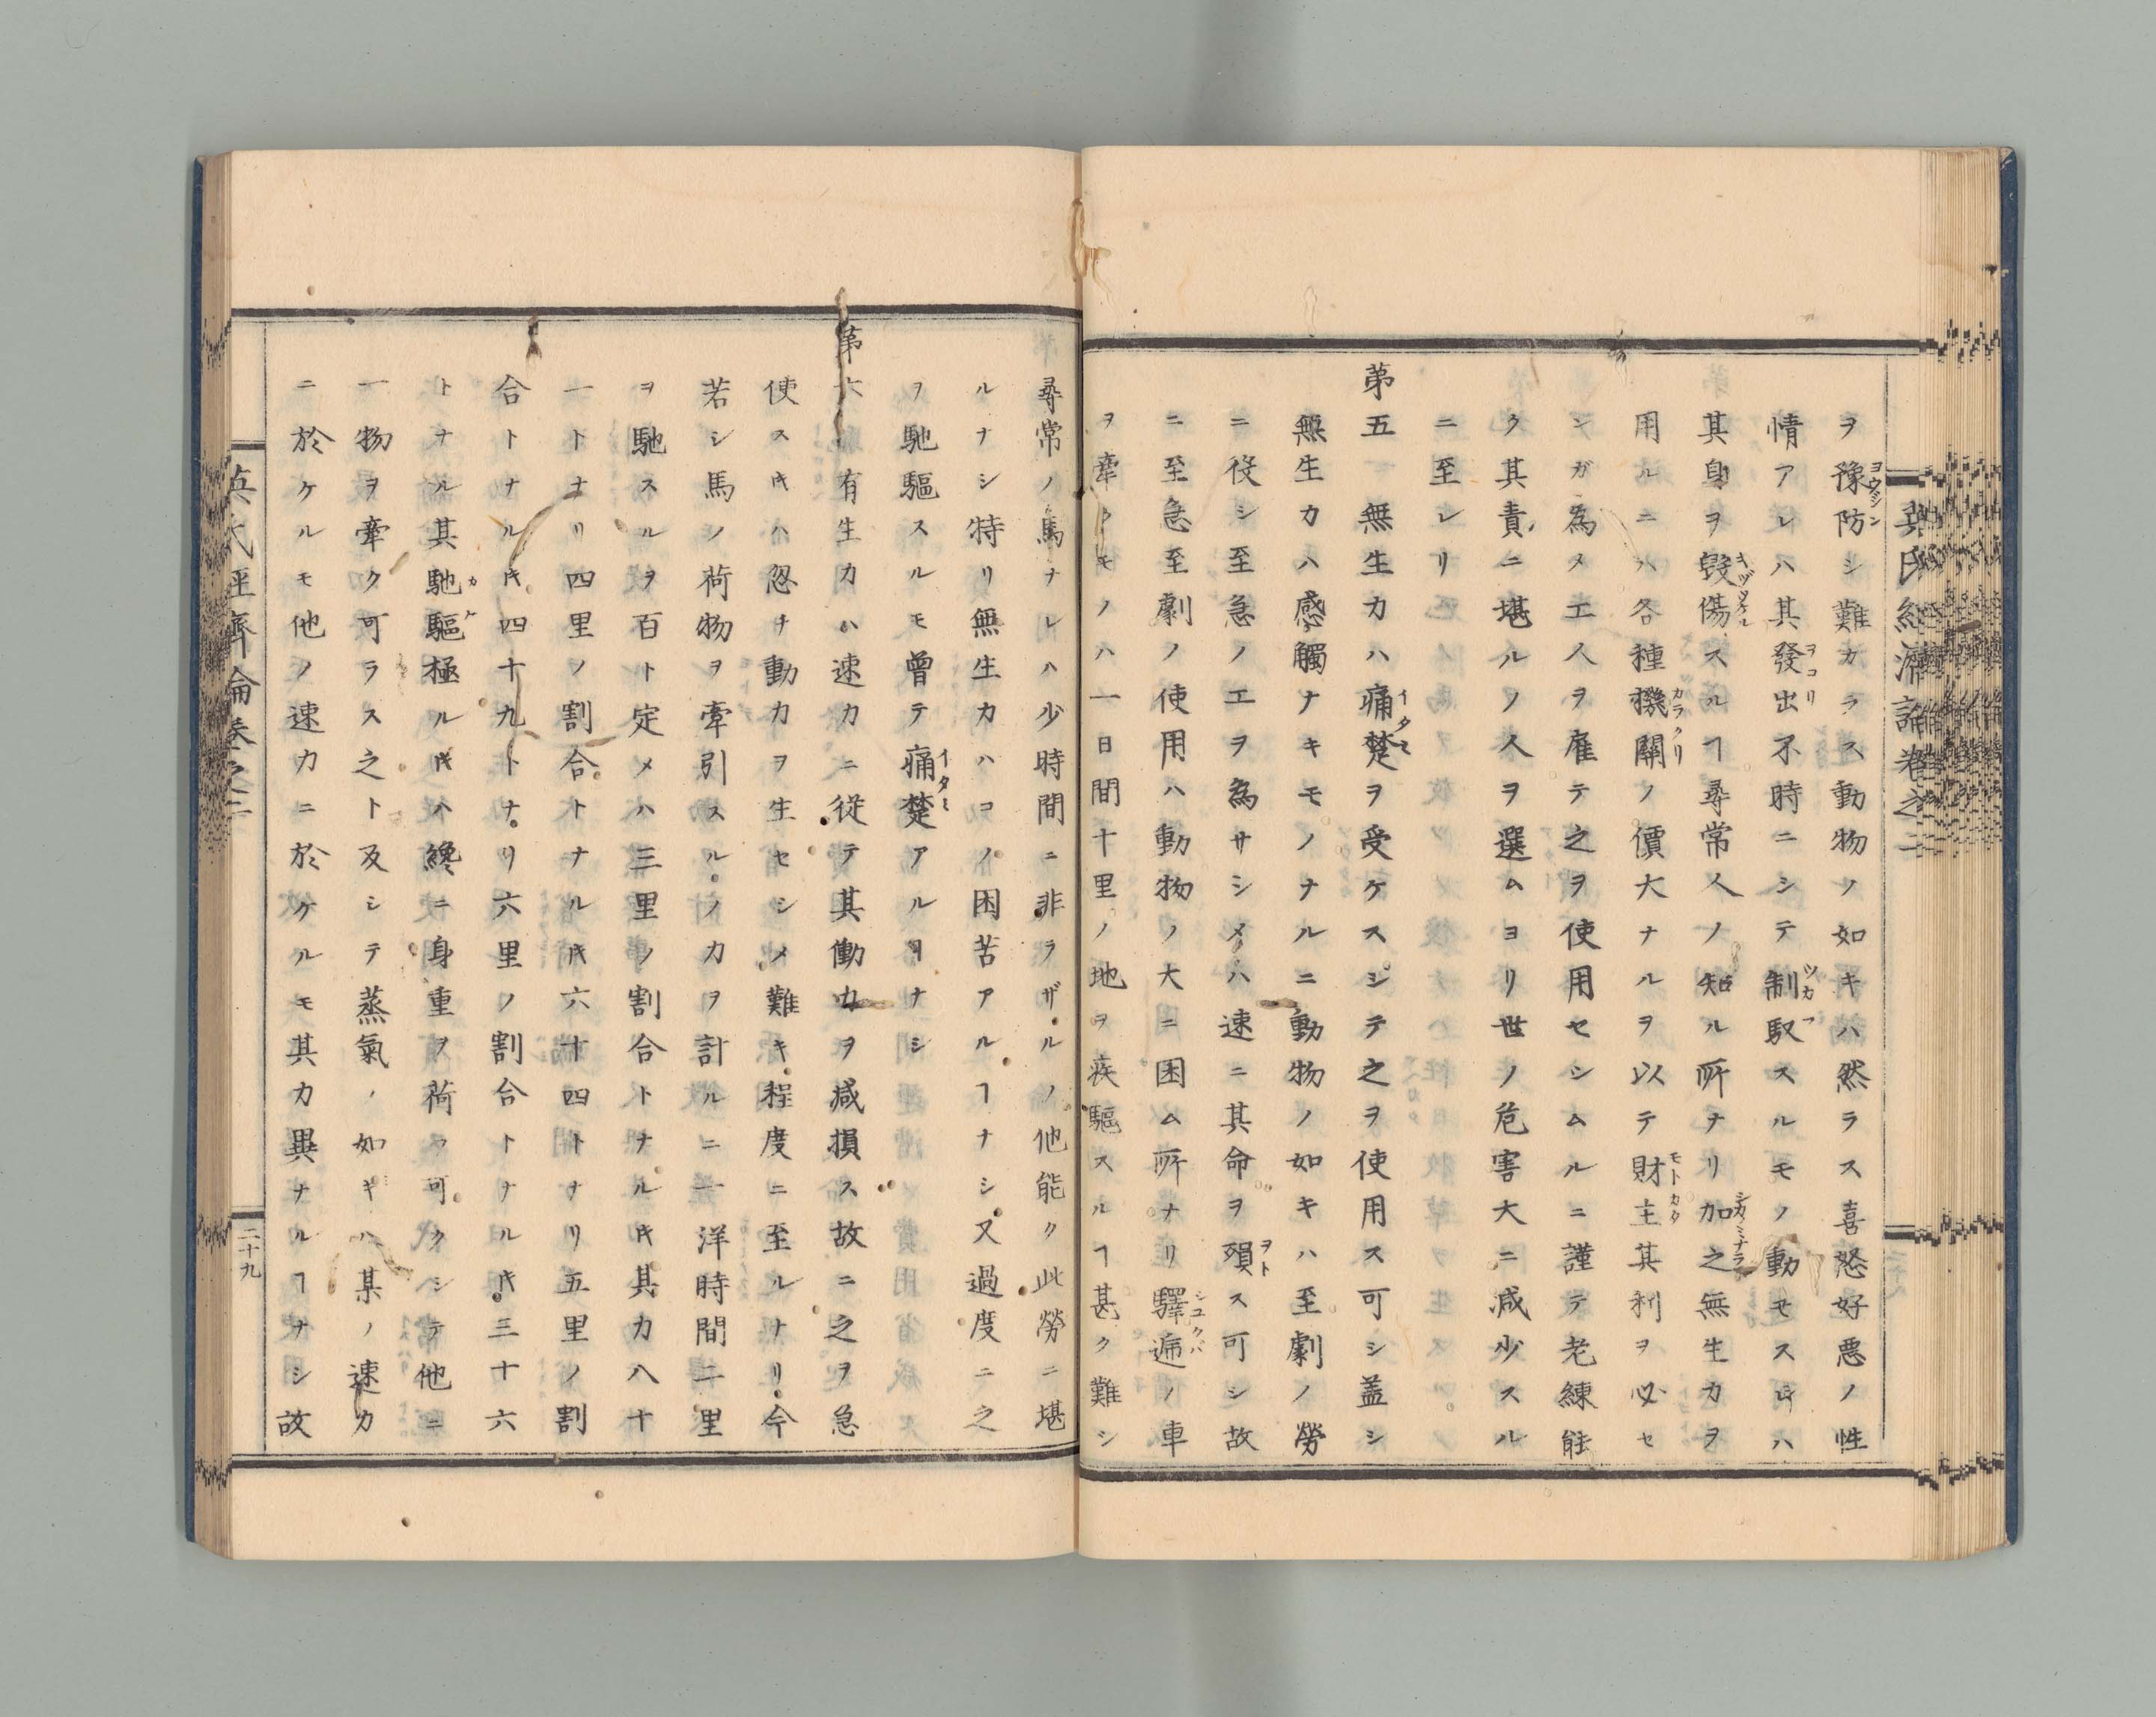 英氏經濟論卷之二
ヲ豫防シ難カラス動物ノ如キハ然ラス喜怒好悪ノ性
情アレハ其發出不時ニシテ制馭スルモノ動モスレハ
其身ヲ毀傷スルヿ尋常人ノ知ル所ナリ加之無生力ヲ
用ルニハ各種機關ノ價大ナルヲ以テ財主其利ヲ必セ
ンガ為メエ人ヲ雇テ之ヲ使用セシムルニ謹テ老練能
ク其責ニ堪ルノ人ヲ選ムヨリ世ノ危害大ニ减少スル
ニ至レリ
第五 無生力ハ痛楚ヲ受ケスシテ之ヲ使用ス可シ盖シ
無生力ハ感觸ナキモノナルニ動物ノ如キハ至劇ノ勞
ニ役シ至急ノエヲ為サシメハ速ニ其命ヲ殞ス可シ故
ニ至急至劇ノ使用ハ動物ノ大ニ困ム所ナリ驛遞ノ車
ヲ牽クモノハ一日間十里ノ地ヲ疾驅スルヿ甚ク難シ
尋常ノ馬ナレハ少時間ニ非ラザルノ他能ク此勞ニ堪
ルナシ特リ無生力ハコノ困苦アルヿナシ又過度ニ之
ヲ馳驅スルモ曾テ痛楚アルヿナシ
第六 有生力ハ速力ニ從テ其働力ヲ减損ス故ニ之ヲ急
使スㇾハ忽チ動力ヲ生セシメ難キ程度ニ至ルナリ今
若シ馬ノ荷物ヲ牽引スルノ力ヲ計ルニ一洋時間二里
ヲ馳スルヲ百ト定メハ三里ノ割合トナルㇾ其力八十
一トナリ四里ノ割合トナルㇾ六十四トナリ五里ノ割
合トナルㇾ四十九トナリ六里ノ割合トナルㇾ三十六
トナル其馳驅極ルㇾハ纔ニ身重ヲ荷フ可クシテ他ニ
一物ヲ牽ク可ラス之ト及シテ蒸氣ノ如キハ某ノ速力
ニ於ケルモ他ノ速力ニ於ケルモ其力異ナルヿナシ故
英氏經濟論卷之二
二十九